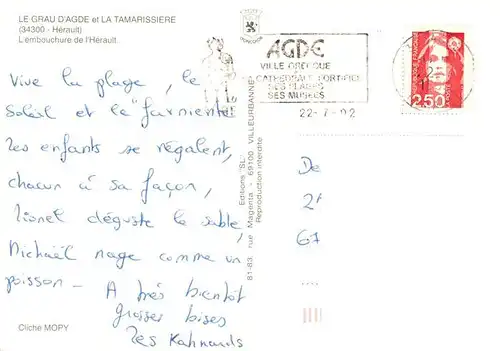 LE GRAU D'AGDE et LA TAMARISSIERE
(34300 - Hérault)
L'embouchure de l'Hérault.
Vive la plage, le
Soleil et le "farniente"
Les enfants se régalent,
chacun à sa façon,
Lionel déguste le sable,
Michaël nage comme un
poisson - A très bientôt
Grosses bises
Les Kahnards
Cliché MOPY
Editions "SL"
81-83, rue Magenta - 69100 VILLEURBANNE
Reproduction interdite
AGDE
VILLE GRECQUE
SES PLAGES
SES MUSÉES
22-7-92
REPUBLIQUE FRANÇAISE
2,50
De
2
67